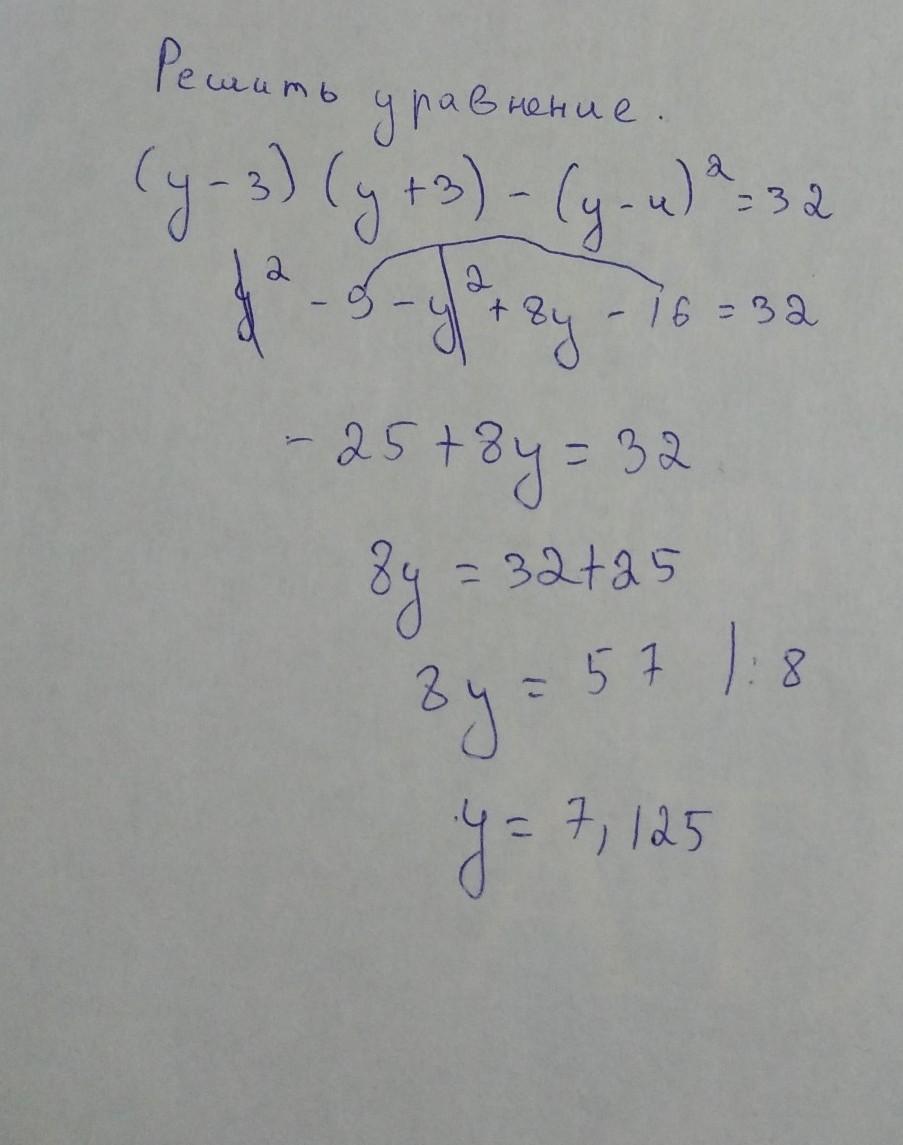 Решить уравнение.
(y-3)(y+3)-(y-4)²=32
y²-9-y²+8y-16=32
-25+8y=32
8y=32+25
8y=57 |:8
y=7,125